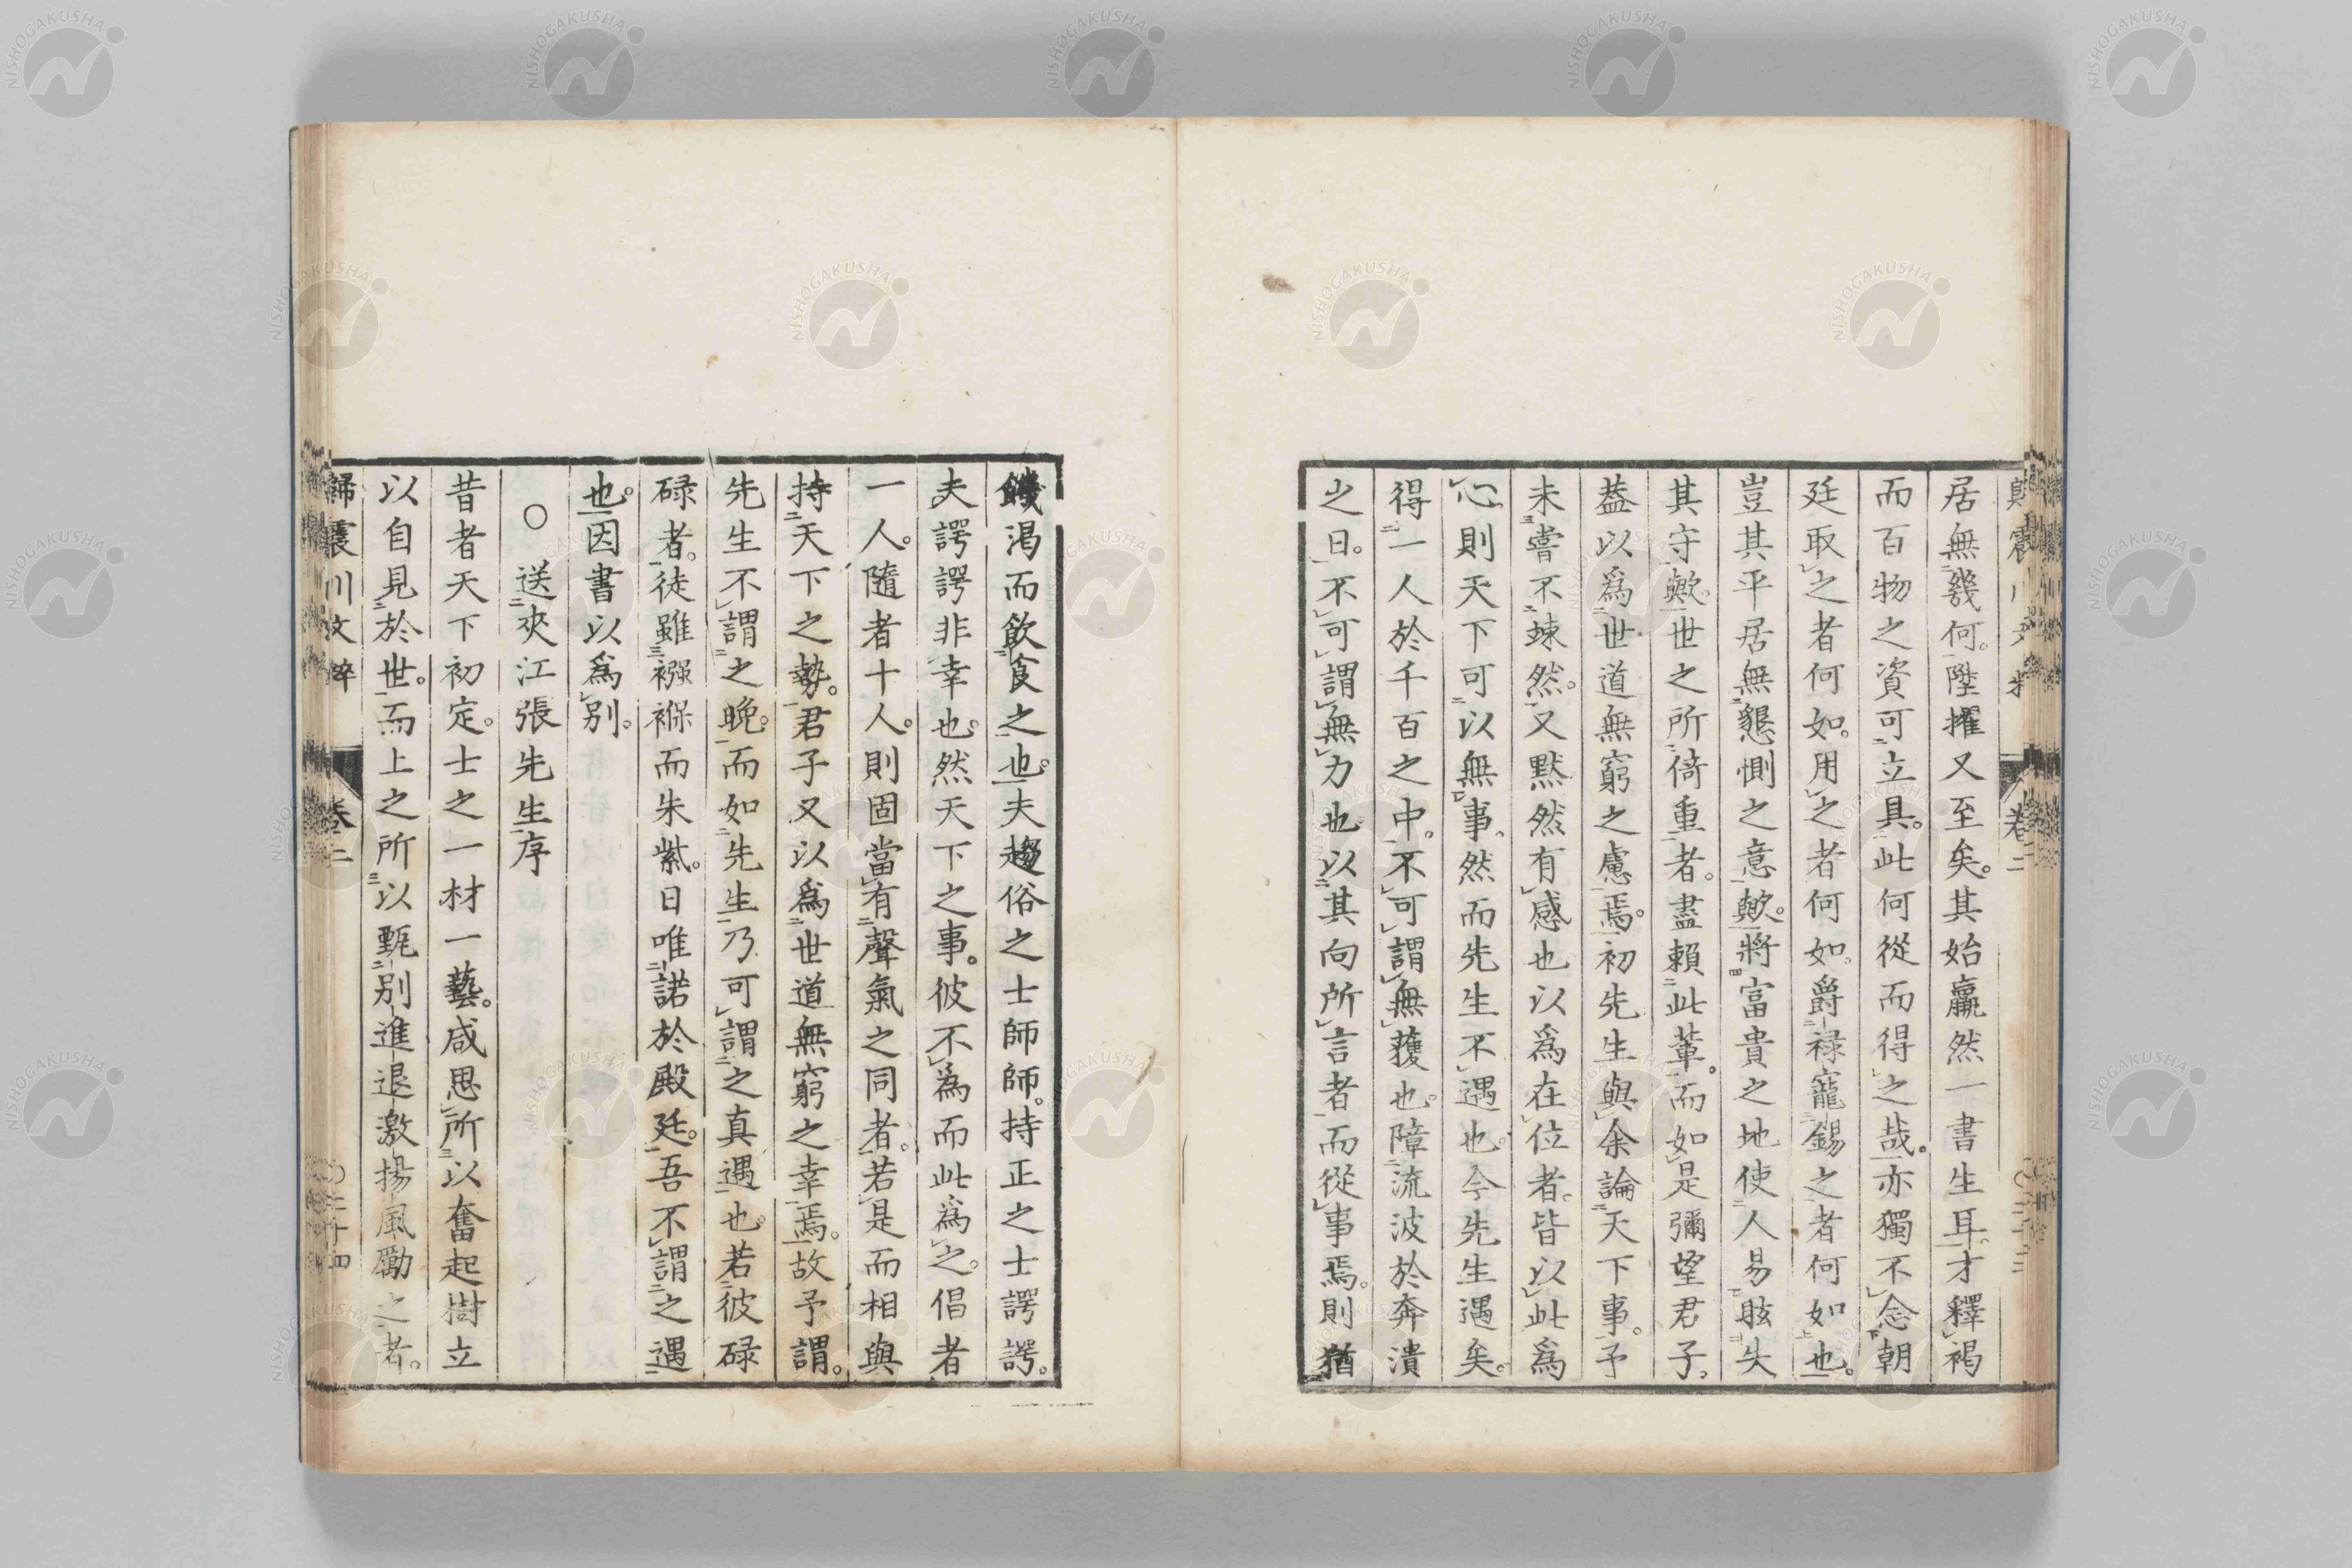 居無幾何。陞擢又至矣。其始羸然一書生耳。才釋褐
而百物之資可立具。此何從而得之哉。亦獨不念朝
廷取之者何如。用之者何如。爵祿寵錫之者何如也。
豈其平居無懇惻之意歟。將富貴之地使人易眩失
其守歟。世之所倚重者。盡賴此輩。而如是彌望君子。
葢以爲世道無窮之慮焉。初先生與余論天下事。予
未嘗不竦然。又默然有感也以爲在位者。皆以此爲
心則天下可以無事。然而先生不遇也。今先生遇矣。
得一人於千百之中。不可謂無獲也。障流波於奔潰
之日。不可謂無力也以其向所言者而從事焉。則猶
饑渴而飲食之也。夫趨俗之士師師。持正之士諤諤。
夫諤諤非幸也。然天下之事。彼不爲而此爲之。倡者
一人。隨者十人。則固當有聲氣之同者。若是而相與
持天下之勢。君子又以爲世道無窮之幸焉。故予謂。
先生不謂之晚。而如先生乃可謂之真遇也。若彼碌
碌者。徒雖襁褓而朱紫。日唯諾於殿廷。吾不謂之遇
也。因書以爲別。
○送夾江張先生序
昔者天下初定。士之一材一藝。咸思所以奮起樹立
以自見於世。而上之所以甄別進退激揚風勵之者。
歸震川文粹 卷二 〇二十四
NISHOGAKUSHA